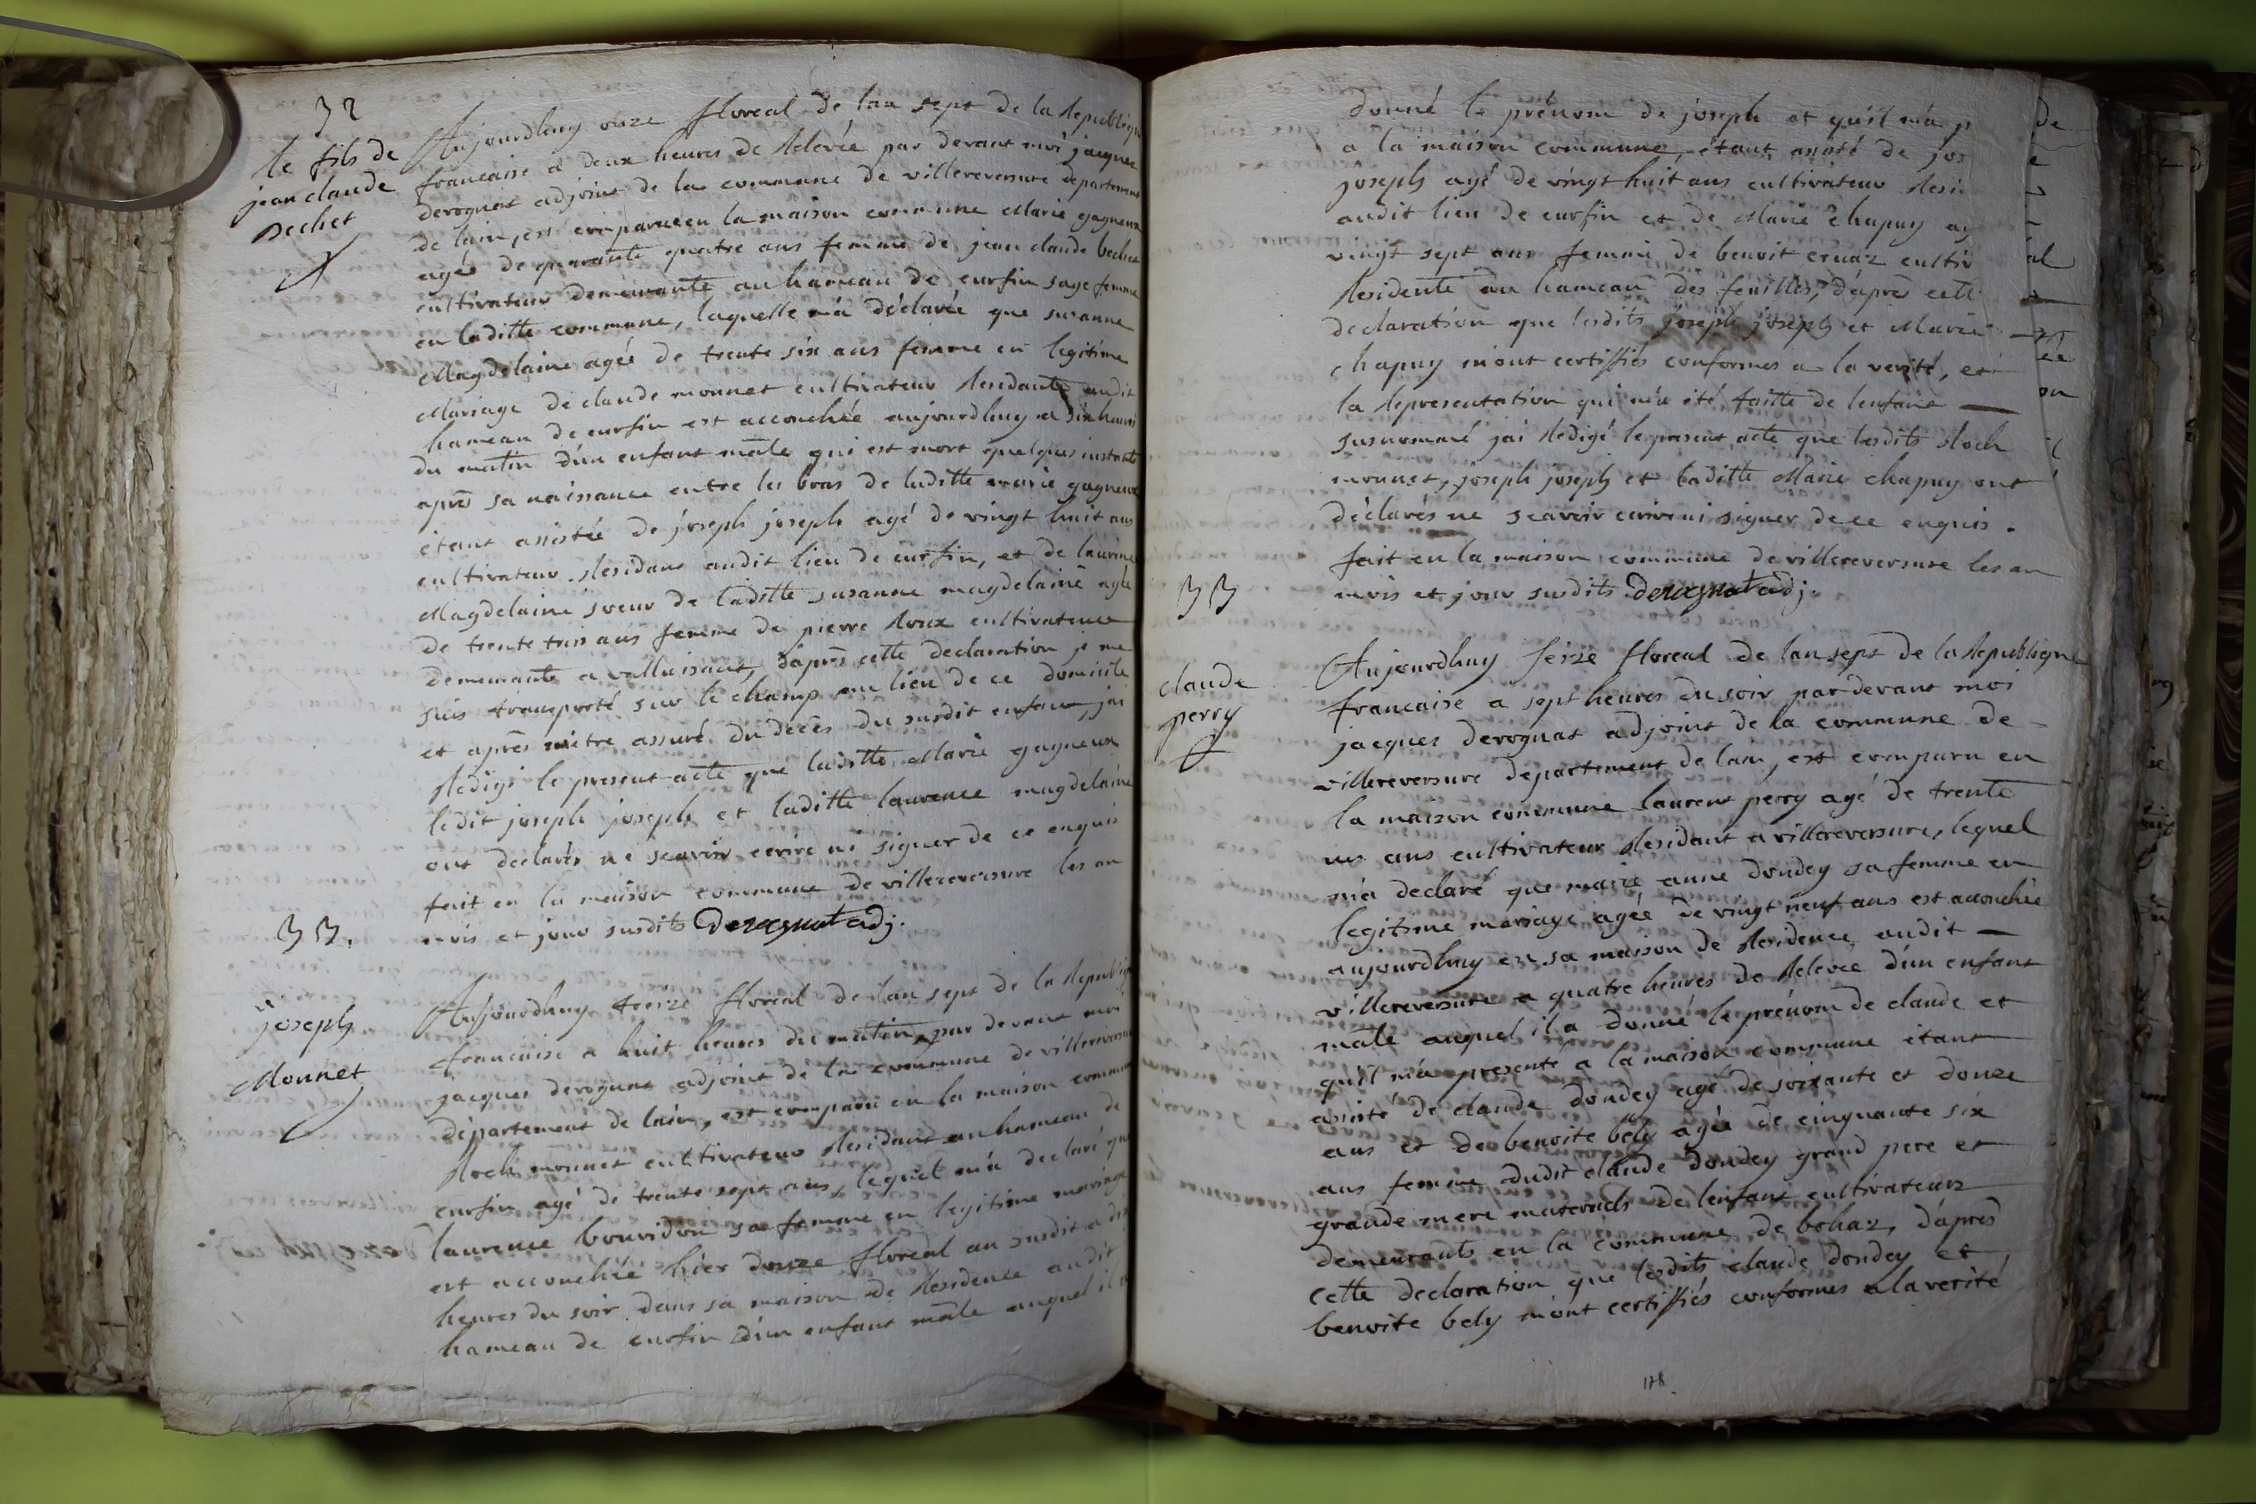 32
le fils de
jean claude
Bechet
Aujourdhuy onze floreal de lan sept de la Republique
francaise a deux heures de Relevée par devant moi jacques
derognat adjoint de la commune de villereversure departement
de lain, est comparue en la maison commune Marie gagneux
agée de quarante quatre ans femme de jean claude bechet
cultivateur demeurante au hameau de curfin sage femme
en laditte commune, laquelle m'a déclaré que susanne
Magdelaine agée de trente six ans femme en legitime
Mariage de claude monnet cultivateur Residante audit
hameau de curfin est accouchée aujourdhuy a six heures
du matin d'un enfant mâle qui est mort quelques instants
après sa naissance entre les bras de laditte marie gagneux
étant assistée de joseph joseph agé de vingt huit ans
cultivateur Residant audit lieu de curfin, et de laurence
Magdelaine soeur de laditte susanne magdelaine agée
de trente trois ans femme de pierre Roux cultivateur
demeurante a valluisant, d'après cette declaration je me
suis transporté sur le champ au lieu de ce domicile
et après m'être assuré du décès du susdit enfant, j'ai
Redigé le present acte que laditte Marie gagneux
ledit joseph joseph et laditte laurence magdelaine
ont declarés ne scavoir ecrire ni signer de ce enquis
fait en la maison commune de villereversure les an
mois et jour susdits Derognat adj.
33.
joseph
Monnet
Aujourdhuy treize floreal de lan sept de la Republique
francaise a huit heures du matin, par devant moi
jacques derognat adjoint de la commune de villereversure
département de lain, est comparu en la maison commune
Roch monnet cultivateur Residant au hameau de
curfin agé de trente sept ans, lequel m'a declaré que
laurence bouvidon sa femme en legitime mariage
est accouchée hier douze floreal an susdit a dix
heures du soir dans sa maison de Residence audit
hameau de curfin d'un enfant mâle auquel il a
donné le prénom de joseph et qu'il m'a p
a la maison commune, étant assisté de jos
joseph agé de vingt huit ans cultivateur Resi
audit lieu de curfin et de Marie chapuy ag
vingt sept ans femme de benoit cruaz cultiv
Residente au hameau des feuilles, d'après cette
declaration que lesdits joseph joseph et Marie
chapuy m'ont certiffiés conformes a la verité, et
la Representation qui m'a été faitte de lenfant
susnommé j'ai Redigé le present acte que lesdits Roch
monnet, joseph joseph et laditte Marie chapuy ont
déclarés ne scavoir ecrire ni signer de ce enquis.
fait en la maison commune de villereversure les an
mois et jour susdits Derognat adj.
33
claude
perry
Aujourdhuy seize floreal de lan sept de la Republique
francaise a sept heures du soir par devant moi
jacques derognat adjoint de la commune de
villereversure departement de lain, est comparu en
la maison commune laurent perry agé de trente
un ans cultivateur Residant a villereversure, lequel
m'a declaré que marie anne dondey sa femme en
legitime mariage agée de vingt neuf ans est accouchée
aujourdhuy en sa maison de Residence audit
villereversure a quatre heures de Relevée d'un enfant
male auquel il a donné le prénom de claude et
qu'il m'a presenté a la maison commune étant
assisté de claude dondey agé de soixante et douze
ans et de benoite bely agée de cinquante six
ans femme dudit claude dondey grand pere et
grande mere maternels de lenfant cultivateurs
demeurants en la commune de bohaz, d'après
cette declaration que lesdits claude dondey et
benoite bely m'ont certiffiés conformes a la verité
178.